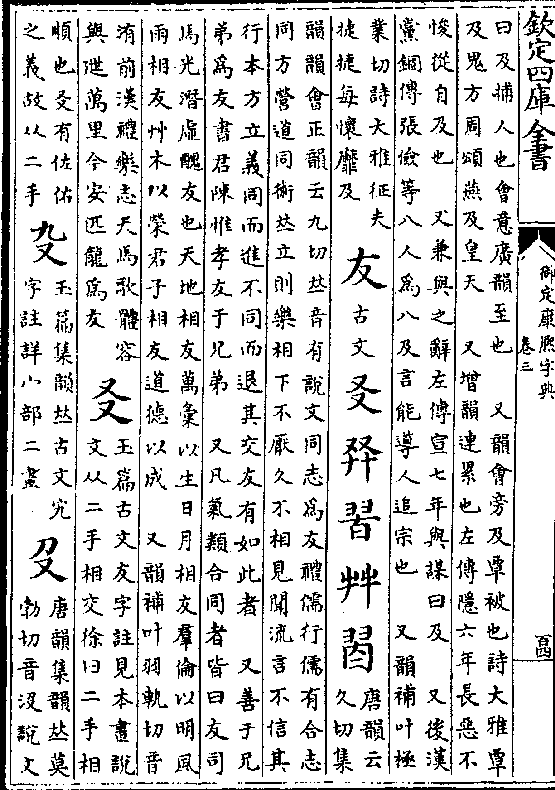 欽定四庫全書
御定康熙字典
卷三
曰及捕人也會意廣韻至也 又韻會旁及覃被也詩大雅覃
及鬼方周頌燕及皇天 又增韻連累也左傳隱六年長惡不
悛從自及也 又兼與之辭左傳宣七年與謀曰及 又後漢
黨錮傳張儉等八人爲八及言能導人追宗也 又韻補叶極
業切詩大雅征夫
捷捷每懷靡及
友
古文
㕛
唐韻云
久切集
韻韻會正韻云九切𠀤音有說文同志爲友禮儒行儒有合志
同方營道同術𠀤立則樂相下不厭久不相見聞流言不信其
行本方立義同而進不同而退其交友有如此者 又善于兄
弟爲友書君陳惟孝友于兄弟 又凡氣類合同者皆曰友司
馬光潛虛醜友也天地相友萬彙以生日月相友羣倫以明風
雨相友艸木以榮君子相友道德以成 又韻補叶羽軌切音
洧前漢禮樂志天馬歌體容
與迣萬里今安匹龍爲友
㕛
玉篇古文友字註見本畫說
文从二手相交徐曰二手相
順也㕛有佐佑
之義故从二手
玉篇集韻𠀤古文宄
字註詳宀部二畫
𠬛
唐韻集韻𠀤莫
勃切音没說文